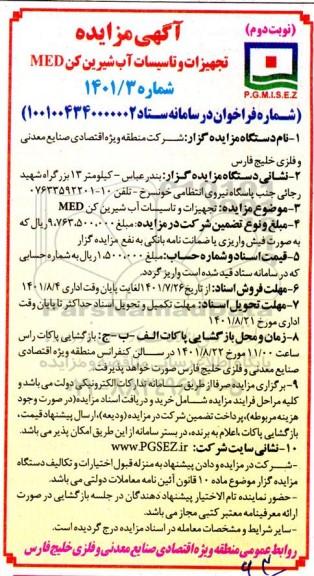 (نوبت دوم)
آگهی مزایده
تجهیزات و تاسیسات آب شیرین کن MED
شماره ۱۴۰۱/۳
P.G.M.I.S.E.Z
(شماره فراخوان در سامانه ستاد ۱۰۰۱۰۰۴۳۴۰۰۰۰۰۰۲)
۱-نام دستگاه مزایده گزار: شرکت منطقه ویژه اقتصادی صنایع معدنی
و فلزی خلیج فارس
۲-نشانی دستگاه مزایده گزار: بندرعباس - کیلومتر ۱۳ بزرگراه شهید
رجائی جنب پاسگاه نیروی انتظامی خونسرخ - تلفن ۱۰-۰۷۶۳۳۵۹۲۲۰۱
۳-موضوع مزایده: تجهیزات و تاسیسات آب شیرین کن MED
۴-مبلغ و نوع تضمین شرکت در مزایده: مبلغ ۹،۷۶۳،۵۰۰،۰۰۰ ریال که
به صورت فیش واریزی یا ضمانت نامه بانکی به نفع مزایده گزار
۵-قیمت اسناد و شماره حساب: مبلغ ۱،۵۰۰،۰۰۰ ریال به شماره حسابی
که در سامانه ستاد قید شده است واریز گردد.
۶-مهلت فروش اسناد: از تاریخ ۱۴۰۱/۷/۲۶ لغایت پایان وقت اداری ۱۴۰۱/۸/۴
۷-مهلت تحویل اسناد: مهلت تکمیل و تحویل اسناد حداکثر تا پایان وقت
اداری مورخ ۱۴۰۱/۸/۲۱
۸-زمان و محل بازگشایی پاکات الف - ب - ج: بازگشایی پاکات راس
ساعت ۱۱/۰۰ مورخ ۱۴۰۱/۸/۲۲ در سالن کنفرانس منطقه ویژه اقتصادی
صنایع معدنی و فلزی خلیج فارس صورت خواهد پذیرفت.
۹-برگزاری مزایده صرفا از طریق سامانه تدارکات الکترونیکی دولت می باشد و
کلیه مراحل فرایند مزایده شامل خرید و دریافت اسناد مزایده (در صورت وجود
هزینه مربوطه)، پرداخت تضمین شرکت در مزایده (ودیعه)، ارسال پیشنهاد قیمت،
بازگشایی پاکات، اعلام به برنده، در بستر سامانه از این طریق امکان پذیر می باشد.
۱۰-نشانی سایت شرکت: www.PGSEZ.ir
-شرکت در مزایده و دادن پیشنهاد به منزله قبول اختیارات و تکالیف دستگاه
مزایده گزار موضوع ماده ۱۰ قانون آئین نامه معاملات دولتی می باشد.
-حضور نماینده تام الاختیار پیشنهاد دهندگان در جلسه بازگشایی در صورت
ارائه معرفینامه معتبر کتبی مجاز می باشد.
-سایر شرایط و مشخصات معامله در اسناد مزایده درج گردیده است.
روابط عمومی منطقه ویژه اقتصادی صنایع معدنی و فلزی خلیج فارس